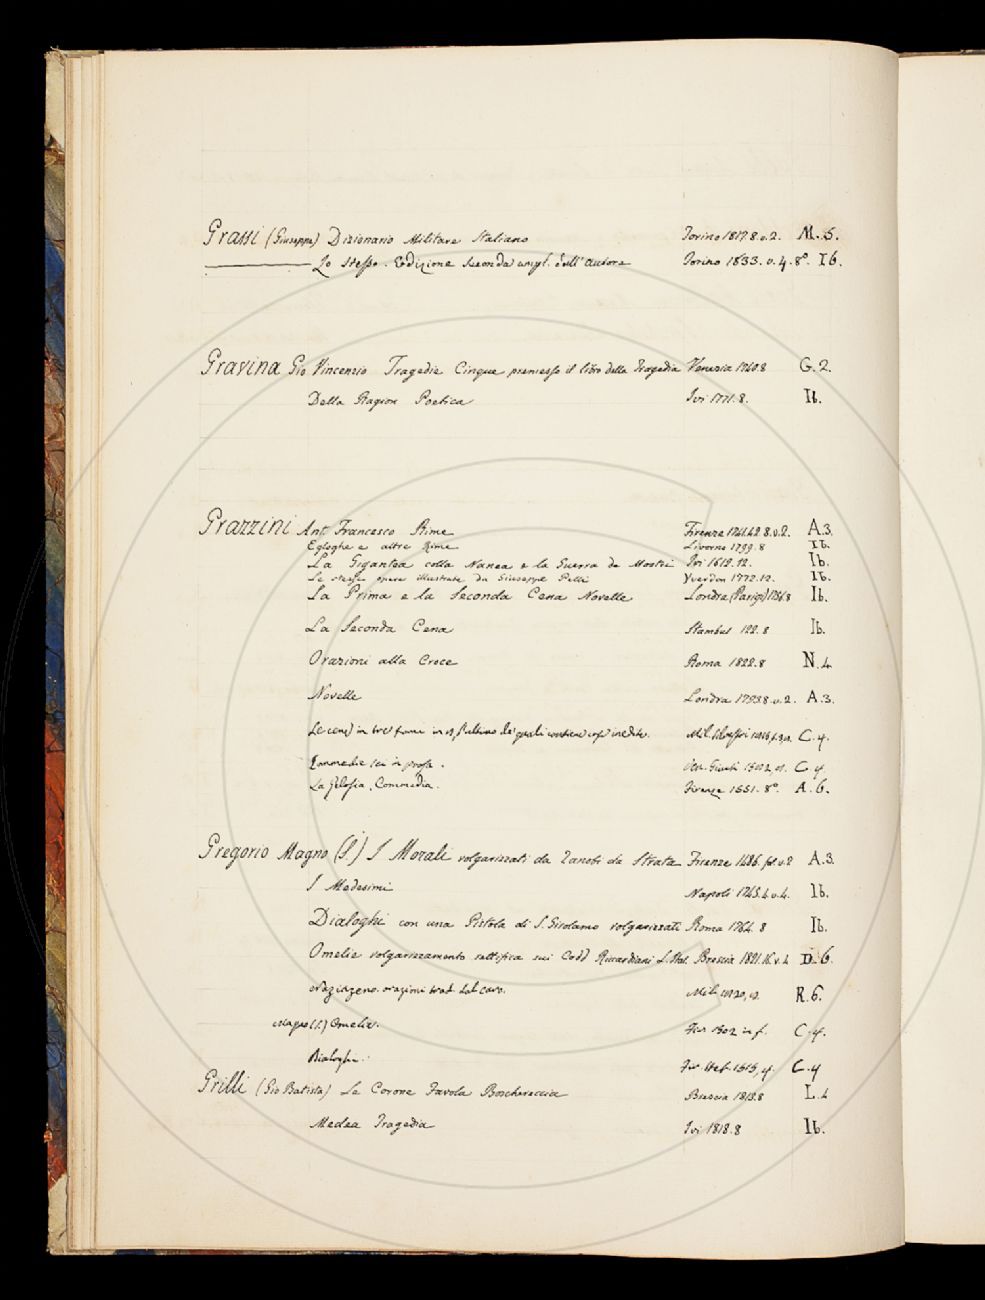 Grassi (Giuseppe) Dizionario Militare Italiano Torino 1817. 8. v. 2. M. 5.
Lo Stesso. Edizione Seconda ampl. dall' Autore Torino 1833. v. 4. 8º. Ib.
Gravina Gio Vincenzio Tragedie Cinque premesso il libro della Tragedia Venezia 1740. 8 G. 2.
Della Ragion Poetica Ivi 1771. 8. Ib.
Grazzini Ant. Francesco Rime Firenze 1741.42 8. v. 2. A. 3.
Egloghe e altre Rime Livorno 1799. 8 Ib.
La Gigantea colla Nanea e la Guerra de Mostri Ivi 1612. 12. Ib.
Le stesse opere illustrate da Giuseppe Pelli Yverdon 1772. 12. Ib.
La Prima e la Seconda Cena Novelle Londra (Parigi) 1756 8 Ib.
La Seconda Cena Stambul 122. 8 Ib.
Orazioni alla Croce Roma 1822. 8 N. 4
Novelle Londra 1793. 8. v. 2. A. 3.
Le cene in tre tomi Mil. Silvestri C. 4.
Commedie sei in prosa. Ven. Giunti 1582, 8. C. 4
La Gelosia, Commedia. Firenze 1551. 8º. A. 6.
Gregorio Magno (S.) I Morali volgarizzati da Zanobi da Strata Firenze 1486. fol v. 2 A. 3.
I Medesimi Napoli 1745. 4 v. 4. Ib.
Dialoghi con una Pistola di S. Girolamo volgarizzati Roma 1764. 8 Ib.
Omelie volgarizzamento sui Codd Riccardiani Brescia 1821. 16. v. 4 D. 6.
Nazianzeno. orazioni trad. dal caro. Mil. R. 6.
Magno (S.) Omelie. Fir 1502 in f. C. 4.
Dialoghi. 1515, 4. C. 4
Grilli (Gio Batista) Le Corone Favola Boschereccia Brescia 1813. 8 L. 4
Medea Tragedia Ivi 1818. 8 Ib.